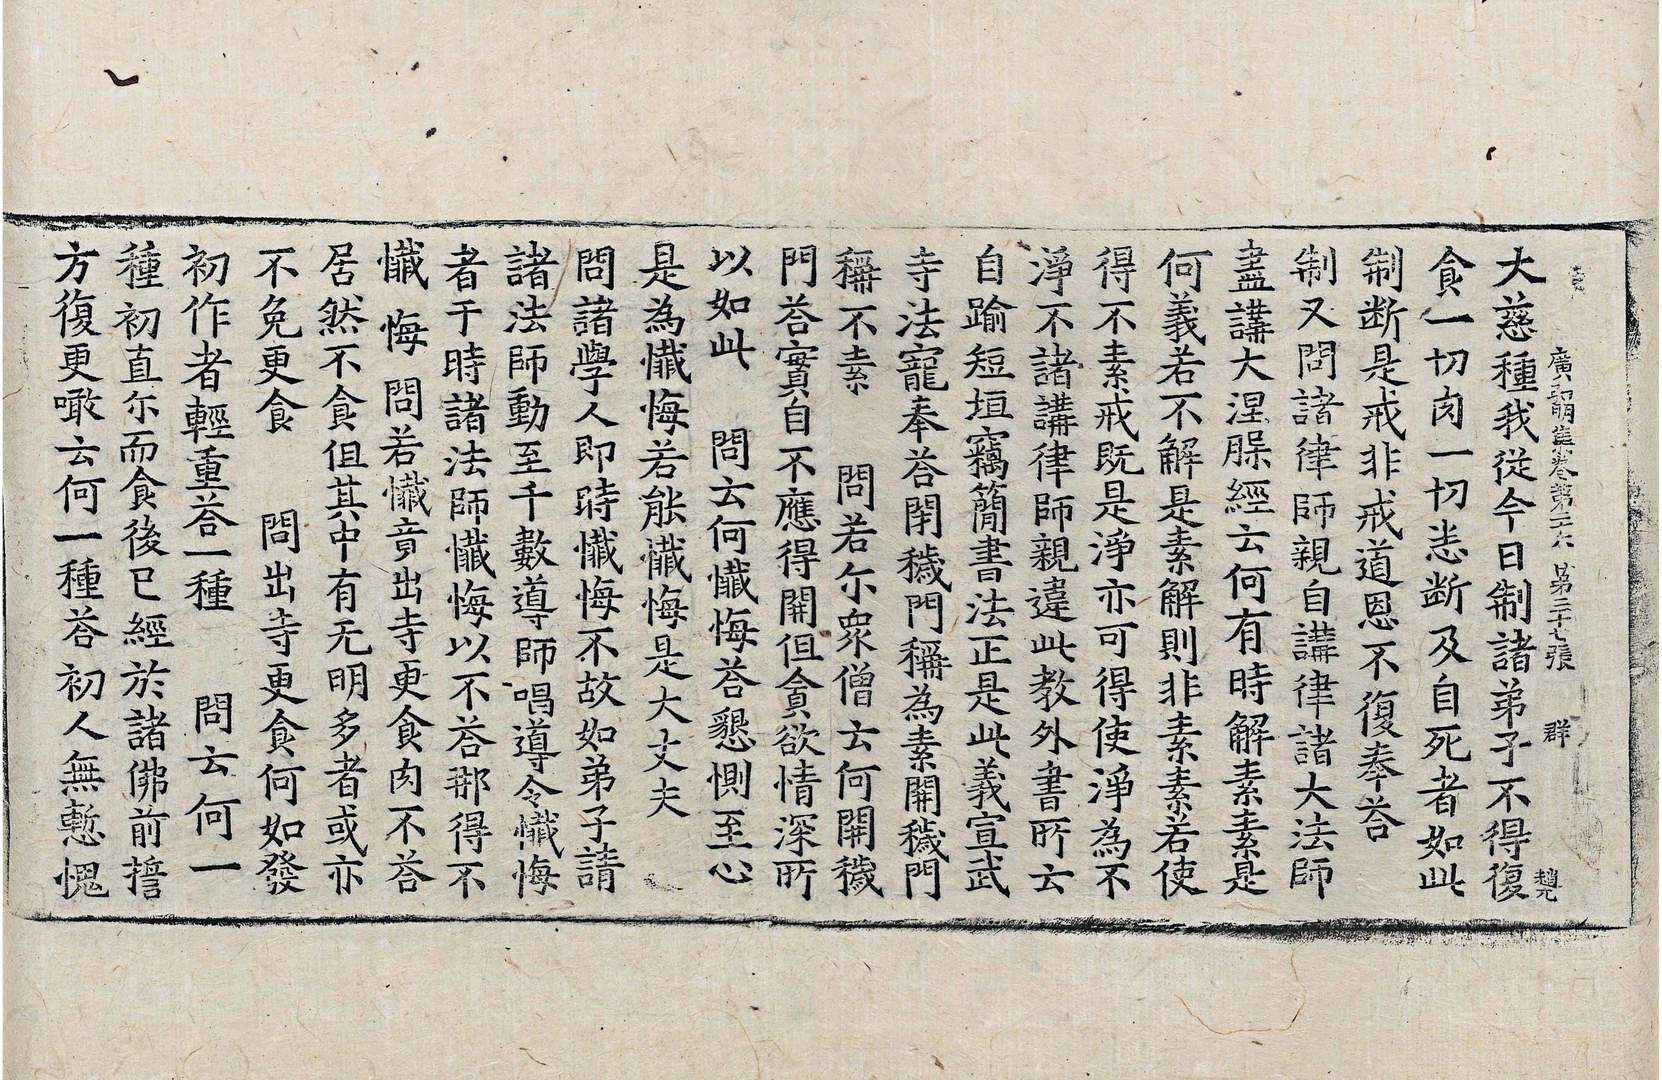 廣弘明集卷第二六 第三十七張 群 趙元
大慈種我從今日制諸弟子不得復
食一切肉一切悉断及自死者如此
制断是戒非戒道恩不復奉荅
制又問諸律師親自講律諸大法師
盡講大涅槃經云何有時解素素是
何義若不解是素解則非素素若使
得不素戒既是淨亦可得使淨為不
淨不諸講律師親違此教外書所云
自踰短垣竊簡書法正是此義宣武
寺法寵奉荅閉穢門稱為素開穢門
稱不素 問若尒衆僧云何開穢
門荅實自不應得開但貪欲情深所
以如此 問云何懺悔荅懇惻至心
是為懺悔若能懺悔是大丈夫
問諸學人即時懺悔不故如弟子請
諸法師動至千數導師唱導令懺悔
者于時諸法師懺悔以不荅那得不
懺悔 問若懺竟出寺更食肉不荅
居然不食但其中有无明多者或亦
不免更食 問出寺更食何如發
初作者輕重荅一種 問云何一
種初直尒而食後已經於諸佛前誓
方復更噉云何一種荅初人無慙愧